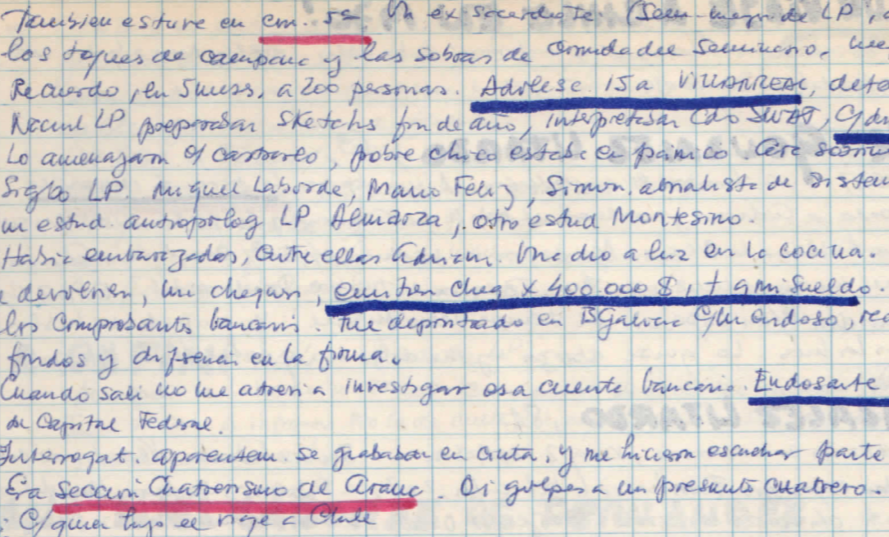 Tambien estuve en cm. 5ª Un ex sacerdote (Sem. mayor de LP,
los toques de campana y las sobras de comida del Seminario.
Recuerdo, en 5 meses, a 200 personas. Adolesc. 15 a VILLARREAL,
Nacnl LP preparaban sketchs fin de año, interpretaban Cdo SWAT,
Lo amenazaron c/ castrarlo, pobre chico estaba en pánico.
Siglo LP. Miguel Laborde, Mario Feliz, Simon, analista de sistem
un estud. antropolog LP Almarza, otro estud Montesino.
Habia embarazadas, entre ellas Adriana. Una dio a luz en la cocina.
devolvieran, un cheque, emiten cheq x 400.000 $, + q mi sueldo.
los comprobants bancari. Fue depositado en B Galicia c/un endoso,
fondos y diferencia en la firma.
Cuando sali no me atrevi a investigar esa cuenta bancaria. Endosante
de Capital Federal.
Interrogat. aparentem. se grababan en cinta, y me hicieron escuchar parte
Era Sección Cuatrerismo de Arana. Oi golpes a un presunto cuatrero.
: C/quien hizo el viaje a Chile